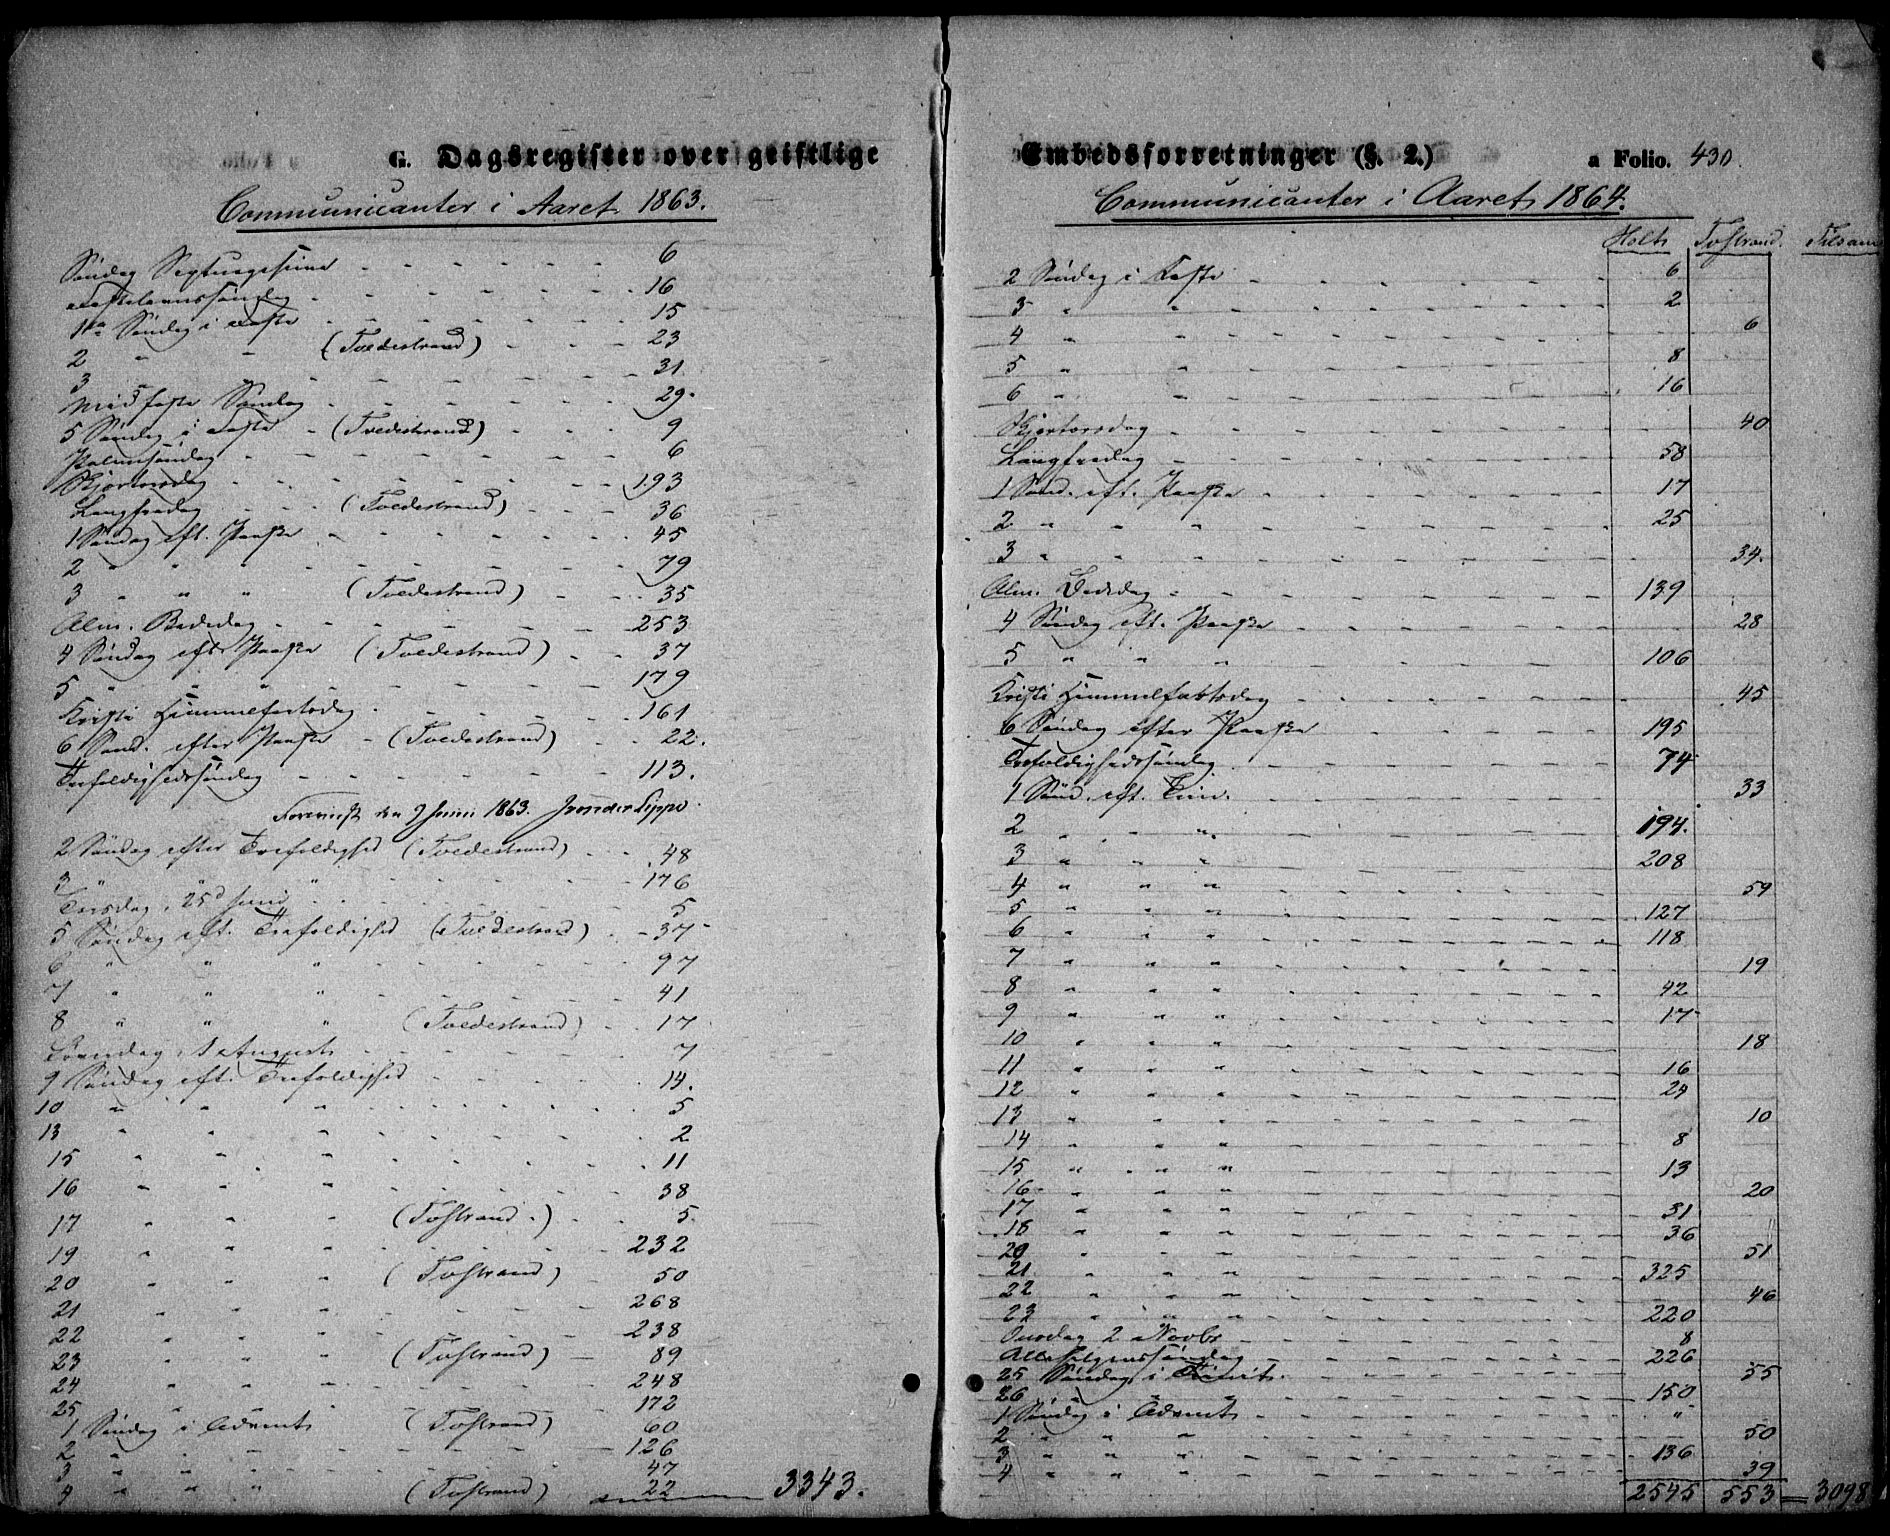 G. Dagsregister over geistlige
Communicanter i Aaret 1863.
Søndag Septuagesima - - - 6
Fastelavnssøndag - - - 16
1ste Søndag i Faste - - - 15
2 " " (Tvedestrand) - - - 23
3 - - - 31
Midfaste Søndag - - - 29.
5 Søndag i Faste - (Tvedestrand) - - - 9
Palmesøndag - - - 6
Skjertorsdag - - - 193
Langfredag - - - (Tvedestrand) - - - 36
1 Søndag eft. Paaske - - - 45
2 " " " - - - 79
3 " " " (Tvedestrand) - - - 35
Alm. Bededag - - - 253
4 Søndag efter Paaske (Tvedestrand) - - - 37
5 " " " - - - 179
Kristi Himmelfartsdag - - - 161
6 Sønd. efter Paaske - (Tvedestrand) - - - 22.
Trefoldighedssøndag - - - 113.
Foreviist den 9 Juni 1863. J von der Lippe.
2 Søndag efter Trefoldighed (Tvedestrand) - - - 48
3 " " " - - - 176
Torsdag, 25d Juni - - - 5
5 Søndag eft. Trefoldighed (Tvedestrand) - - - 37
6 " " " - - - 97
7 " " " - - - 41
8 " " " (Tvedestrand) - - - 17
Løverdag, 1 August - - - 7
9 Søndag eft. Trefoldighed - - - 14.
10 " " " - - - 5
13 " " " - - - 2
15 " " " - - - 11
16 " " " - - - 38
17 " " " (Tvstrand.) - - - 5
19 " " " - - - 232
20 " " " (Tvstrand) - - - 50
21 " " " - - - 268
22 " " " - - - 238
23 " " " (Tvstrand) - 89
24 " " " - - - 248
25 " " " - - - 172
1 Søndag i Advent (Tvstrand) 60
2 " " " - - - 126
3 " " " - - - 47
4 " " " (Tvstrand) 22 3343.
Embedsforretninger (§. 2.) a Folio. 430.
Communicanter i Aaret 1864.
Holt Tvstrand. Tilsam
2 Søndag i Faste - - - 6
3 " " - - - 2
4 " " - - - 6
5 " " - - - 8
6 " " - - - 16
Skjertorsdag - - - 40
Langfredag - - - 58
1 Sønd. eft. Paaske - - - 17
2 " " " - - - 25
3 " " " - - - 34.
Alm. Bededag - - - 139
4 Søndag eft. Paaske - - - 28
5 " " " - - - 106
Kristi Himmelfartsdag - - - 45
6 Søndag efter Paaske - - - 195
Trefoldighedssøndag - - - 74
1 Sønd. eft. Trin. - - - 33
2 " " " - - - 194.
3 " " " - - - 208
4 " " " - - - 59
5 " " " - - - 127
6 " " " - - - 118
7 " " " - - - 19
8 " " " - - - 42
9 " " " - - - 17
10 " " " - - - 18
11 " " " - - - 16
12 " " " - - - 24
13 " " " - - - 10
14 " " " - - - 8
15 " " " - - - 13
16 " " " - - - 20
17 " " " - - - 31
18 " " " - - - 36
20 " " " - - - 51
21 " " " - - - 325
22 " " " - - - 46
23 " " " - - - 220
Onsdag 2 Novbr - - - 8
Allehelgenssøndag - - - 226
25 Søndag i Trinit. - - - 55
26 - - - 150
1 Søndag i Advent - - - "
2 " " " - - - 50
3 " " " - - - 136
4 " " " - - - 39
2545 553 = 3098